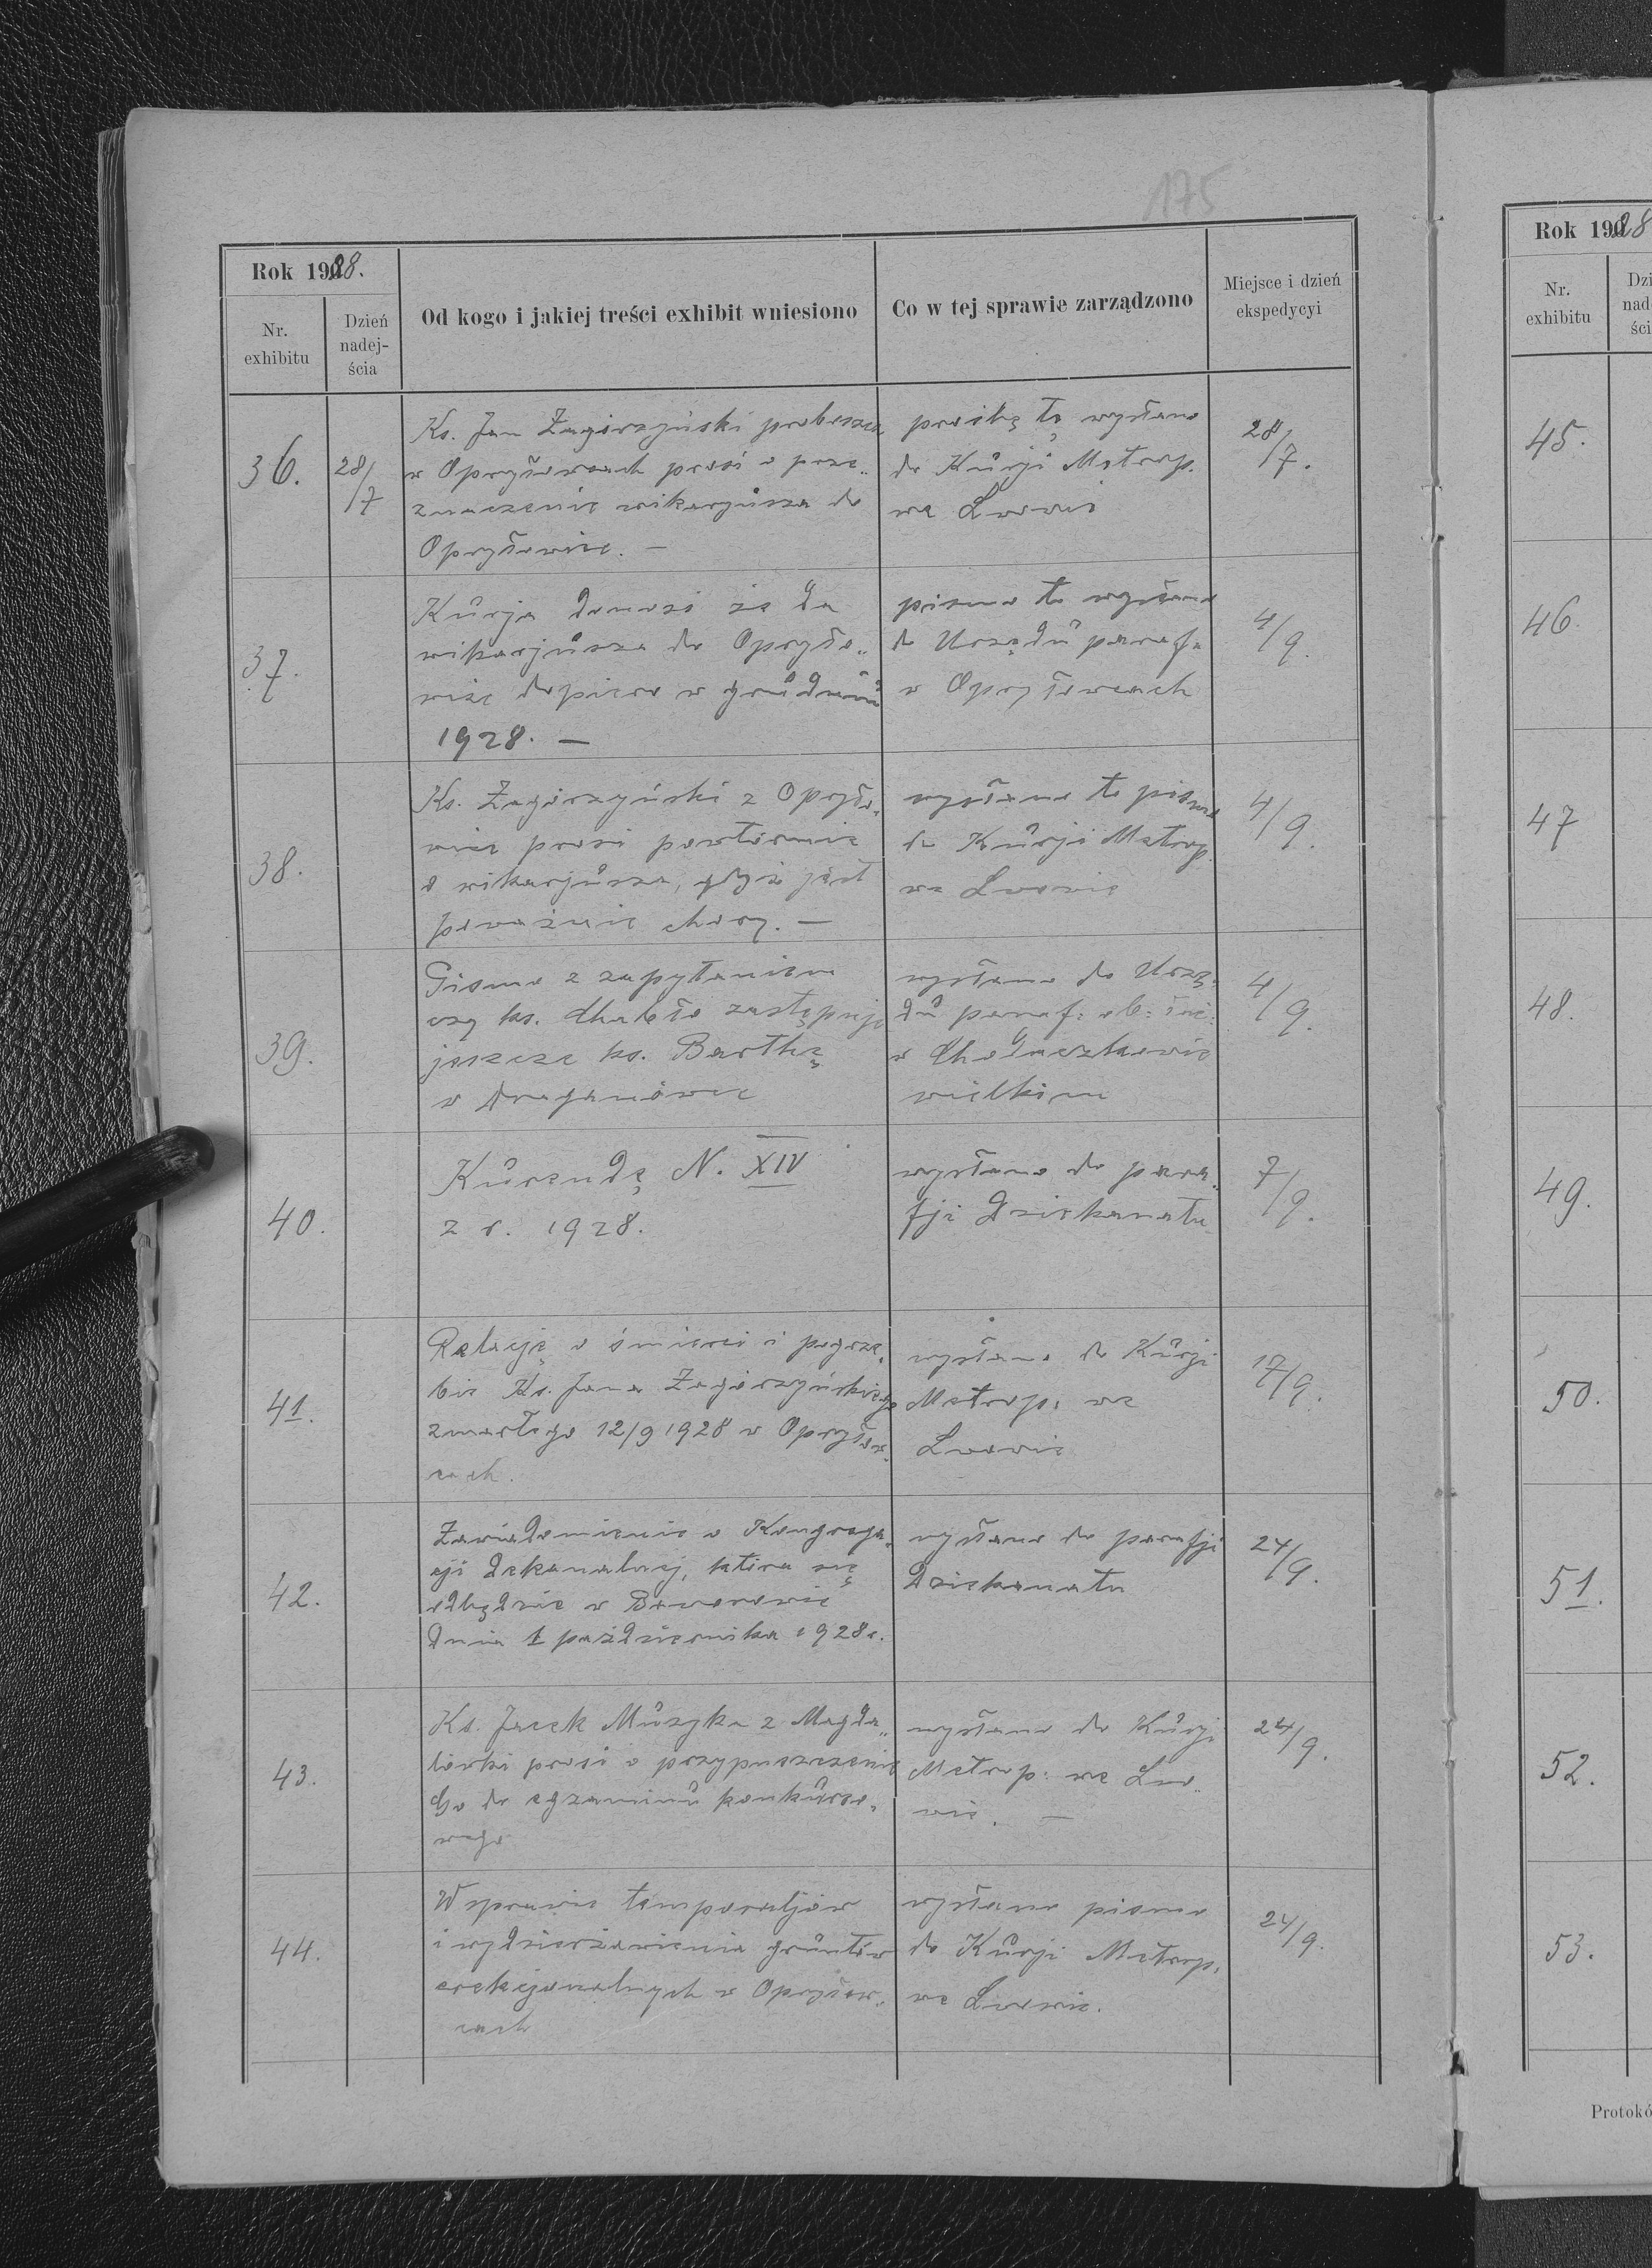 175
Rok 1928.
Nr.
exhibitu
Dzień
nadej-
ścia
Od kogo i jakiej treści exhibit wniesiono
Co w tej sprawie zarządzono
Miejsce i dzień
ekspedycyi
36.
28/7
Ks. Jan Zagórzyński proboszcz
w Opryłowcach prosi o prze„
znaczenie wikarjusza do
Opryłowiec. —
prośbę tę wysłano
do Kurji Metrop.
we Lwowie
28/7.
37.
Kurja donosi że da
wikarjusza do Opryło„
wiec dopiero w grudniu
1928. —
pismo to wysłano
do Urzędu paraf.
w Opryłowcach
4/9.
38.
Ks. Zagórzyński z Opryło„
wiec prosi powtórnie
o wikarjusza, gdyż jest
poważnie chory. —
wysłano to pismo
do Kurji Metrop.
we Lwowie
4/9.
39.
Pismo z zapytaniem
czy ks. Chabło zastępuje
jeszcze ks. Bartkę
w Draganówce
wysłano do Urzę„
du paraf: ob: łac:
w Chodaczkowie
wielkim
4/9.
40.
Kurendę N. XIV
z r. 1928.
wysłano do para„
fji Dziekanatu
7/9.
41.
Relację o śmierci i pogrze„
bie Ks. Jana Zagórzyńskiego
zmarłego 12/9 1928 w Opryłow„
cach.
wysłano do Kurji
Metrop: we
Lwowie
17/9.
42.
Zawiadomienie o Kongrega„
cji dekanalnej, która się
odbędzie w Baworowie
dnia 1 października 1928r.
wysłano do parafji
Dziekanatu
24/9.
43.
Ks. Jacek Muzyka z Magda„
lówki prosi o przypuszczenie
Go do egzaminu konkurso„
wego
wysłano do Kurji
Metrop: we Lwo„
wie. —
24/9.
44.
W sprawie temporaljów
i wydzierżawienia gruntów
erekcjonalnych w Opryłow„
cach
wysłano pismo
do Kurji Metrop.
we Lwowie.
24/9.
Rok 1928
Nr.
exhibitu
Dzi
nad
ści
45.
46.
47
48.
49.
50.
51.
52.
53.
Protokó